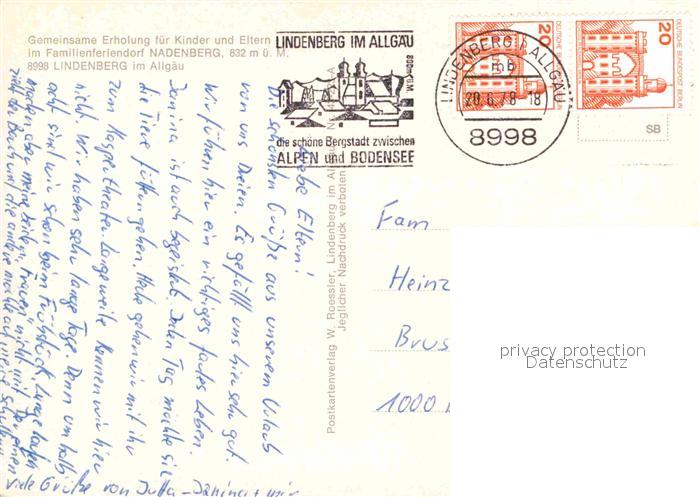 Gemeinsame Erholung für Kinder und Eltern
im Familienferiendorf NADENBERG, 832 m ü. M.
8998 LINDENBERG im Allgäu
LINDENBERG IM ALLGÄU
800 m ü. M.
die schöne Bergstadt zwischen
ALPEN und BODENSEE
LINDENBERG I ALLGÄU
mb
20.6.78 18
8998
20
20
DEUTSCHE BUNDESPOST BERLIN
SB
Postkartenverlag W. Roessler, Lindenberg im Allgäu
Jeglicher Nachdruck verboten
Liebe Eltern!
Die schönsten Grüße aus unserem Urlaub
von uns Dreien. Es gefällt uns hier sehr gut.
Wir führen hier ein richtiges faules Leben.
Janina ist auch begeistert. Jeden Tag möchte sie
die Tiere füttern gehen. Heute gehen wir mit ihr
zum Kaspertheater. Langeweile kennen wir hier
nicht. Wir haben sehr lange Tage. Denn um halb
acht sind wir schon beim Frühstück. Lange laufen
machen aber meine beiden "Frauen" nicht mit. Der einen
viele Grüße von Jutta - Janina + mir
Fam
Heinz
Brus
1000
privacy protection
Datenschutz